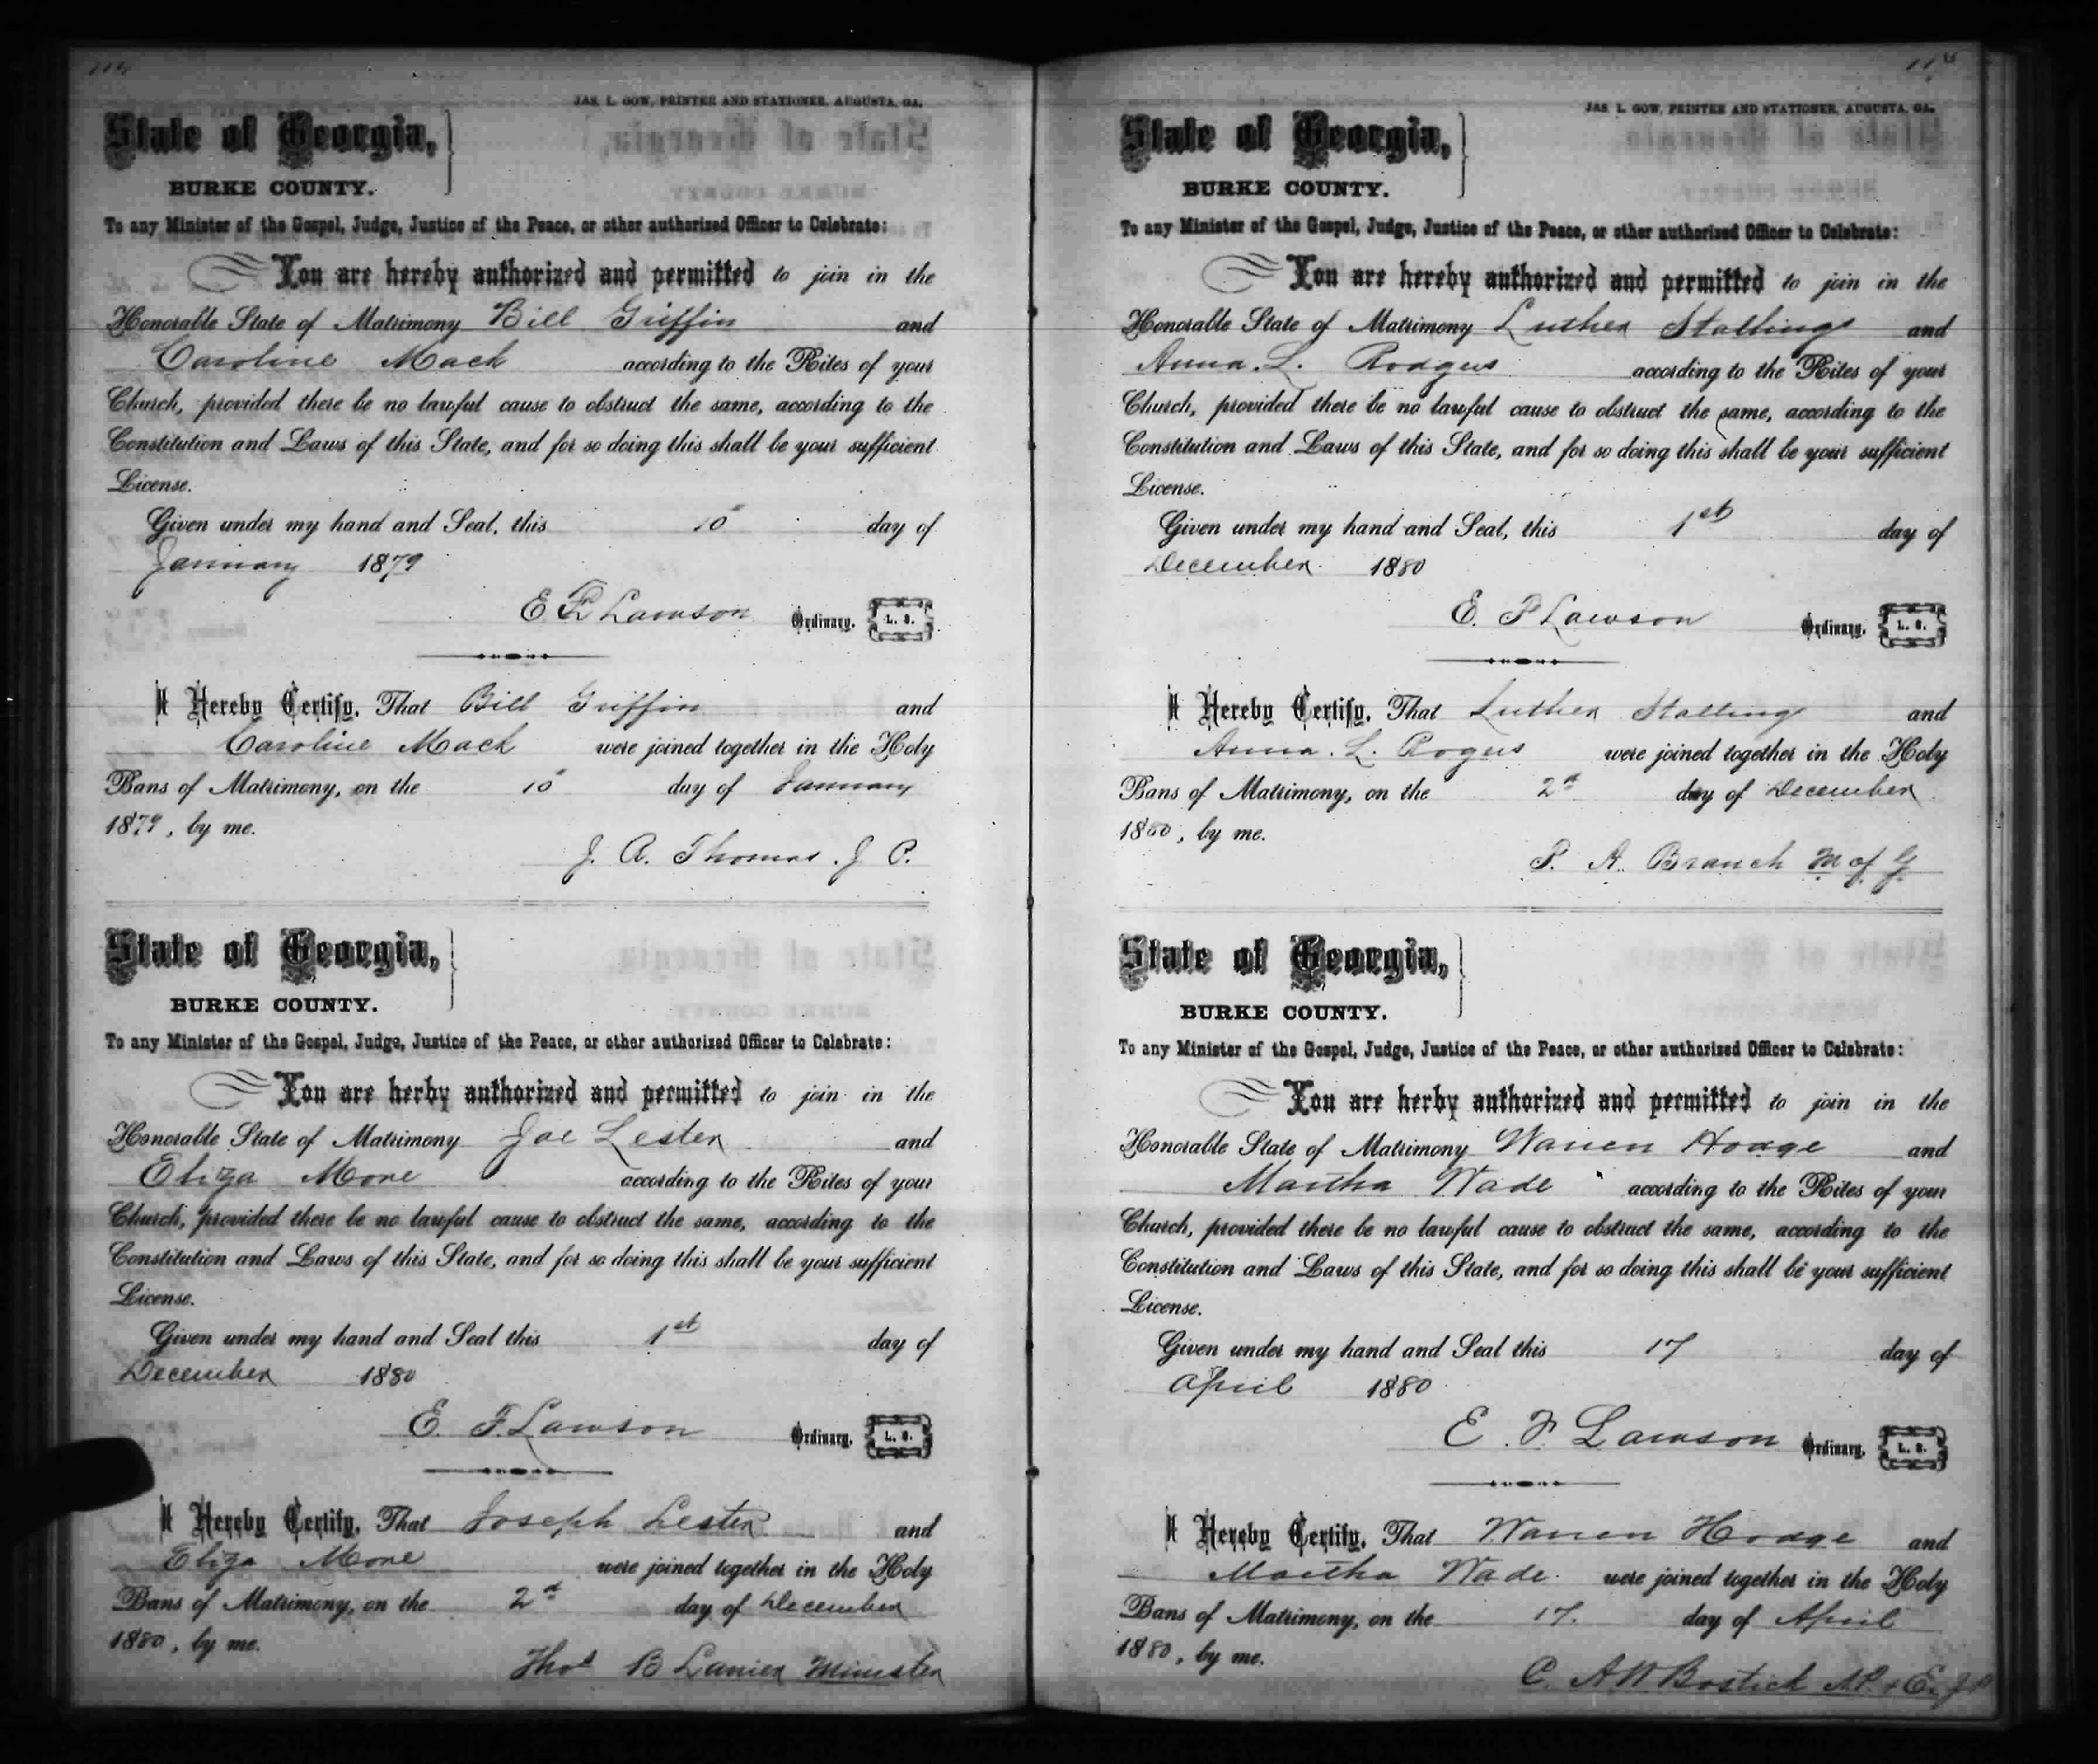 114
JAS. L. GOW, PRINTER AND STATIONER, AUGUSTA, GA.
State of Georgia,
BURKE COUNTY.
To any Minister of the Gospel, Judge, Justice of the Peace, or other authorized Officer to Celebrate:
You are hereby authorized and permitted to join in the
Honorable State of Matrimony Bill Griffin and
Caroline Mack according to the Rites of your
Church, provided there be no lawful cause to obstruct the same, according to the
Constitution and Laws of this State, and for so doing this shall be your sufficient
License.
Given under my hand and Seal, this 10" day of
January 1879
E F Lawson Ordinary. L. S.
I Hereby Certify, That Bill Griffin and
Caroline Mack were joined together in the Holy
Bans of Matrimony, on the 10" day of January
1879, by me.
J. A. Thomas. J P.
State of Georgia,
BURKE COUNTY.
To any Minister of the Gospel, Judge, Justice of the Peace, or other authorized Officer to Celebrate:
You are herby authorized and permitted to join in the
Honorable State of Matrimony Joe Lester and
Eliza More according to the Rites of your
Church, provided there be no lawful cause to obstruct the same, according to the
Constitution and Laws of this State, and for so doing this shall be your sufficient
License.
Given under my hand and Seal this 1st day of
December 1880
E. F. Lawson Ordinary. L. S.
I Hereby Certify, That Joseph Lester and
Eliza More were joined together in the Holy
Bans of Matrimony, on the 2d day of December
1880, by me.
Thos B Lanier Minister
115
JAS. L. GOW, PRINTER AND STATIONER, AUGUSTA, GA.
State of Georgia,
BURKE COUNTY.
To any Minister of the Gospel, Judge, Justice of the Peace, or other authorized Officer to Celebrate:
You are hereby authorized and permitted to join in the
Honorable State of Matrimony Luther Stallings and
Anna. L. Rodgers according to the Rites of your
Church, provided there be no lawful cause to obstruct the same, according to the
Constitution and Laws of this State, and for so doing this shall be your sufficient
License.
Given under my hand and Seal, this 1st day of
December 1880
E. F Lawson Ordinary. L. S.
I Hereby Certify, That Luther Stallings and
Anna. L. Rogers were joined together in the Holy
Bans of Matrimony, on the 2d day of December
1880, by me.
P. A. Branch M of G
State of Georgia,
BURKE COUNTY.
To any Minister of the Gospel, Judge, Justice of the Peace, or other authorized Officer to Celebrate:
You are herby authorized and permitted to join in the
Honorable State of Matrimony Warren Hodge and
Martha Wade according to the Rites of your
Church, provided there be no lawful cause to obstruct the same, according to the
Constitution and Laws of this State, and for so doing this shall be your sufficient
License.
Given under my hand and Seal this 17 day of
April 1880
E. F. Lawson Ordinary. L. S.
I Hereby Certify, That Warren Hodge and
Martha Wade. were joined together in the Holy
Bans of Matrimony, on the 17. day of April
1880, by me.
C. A W Bostick NP & Ex J P